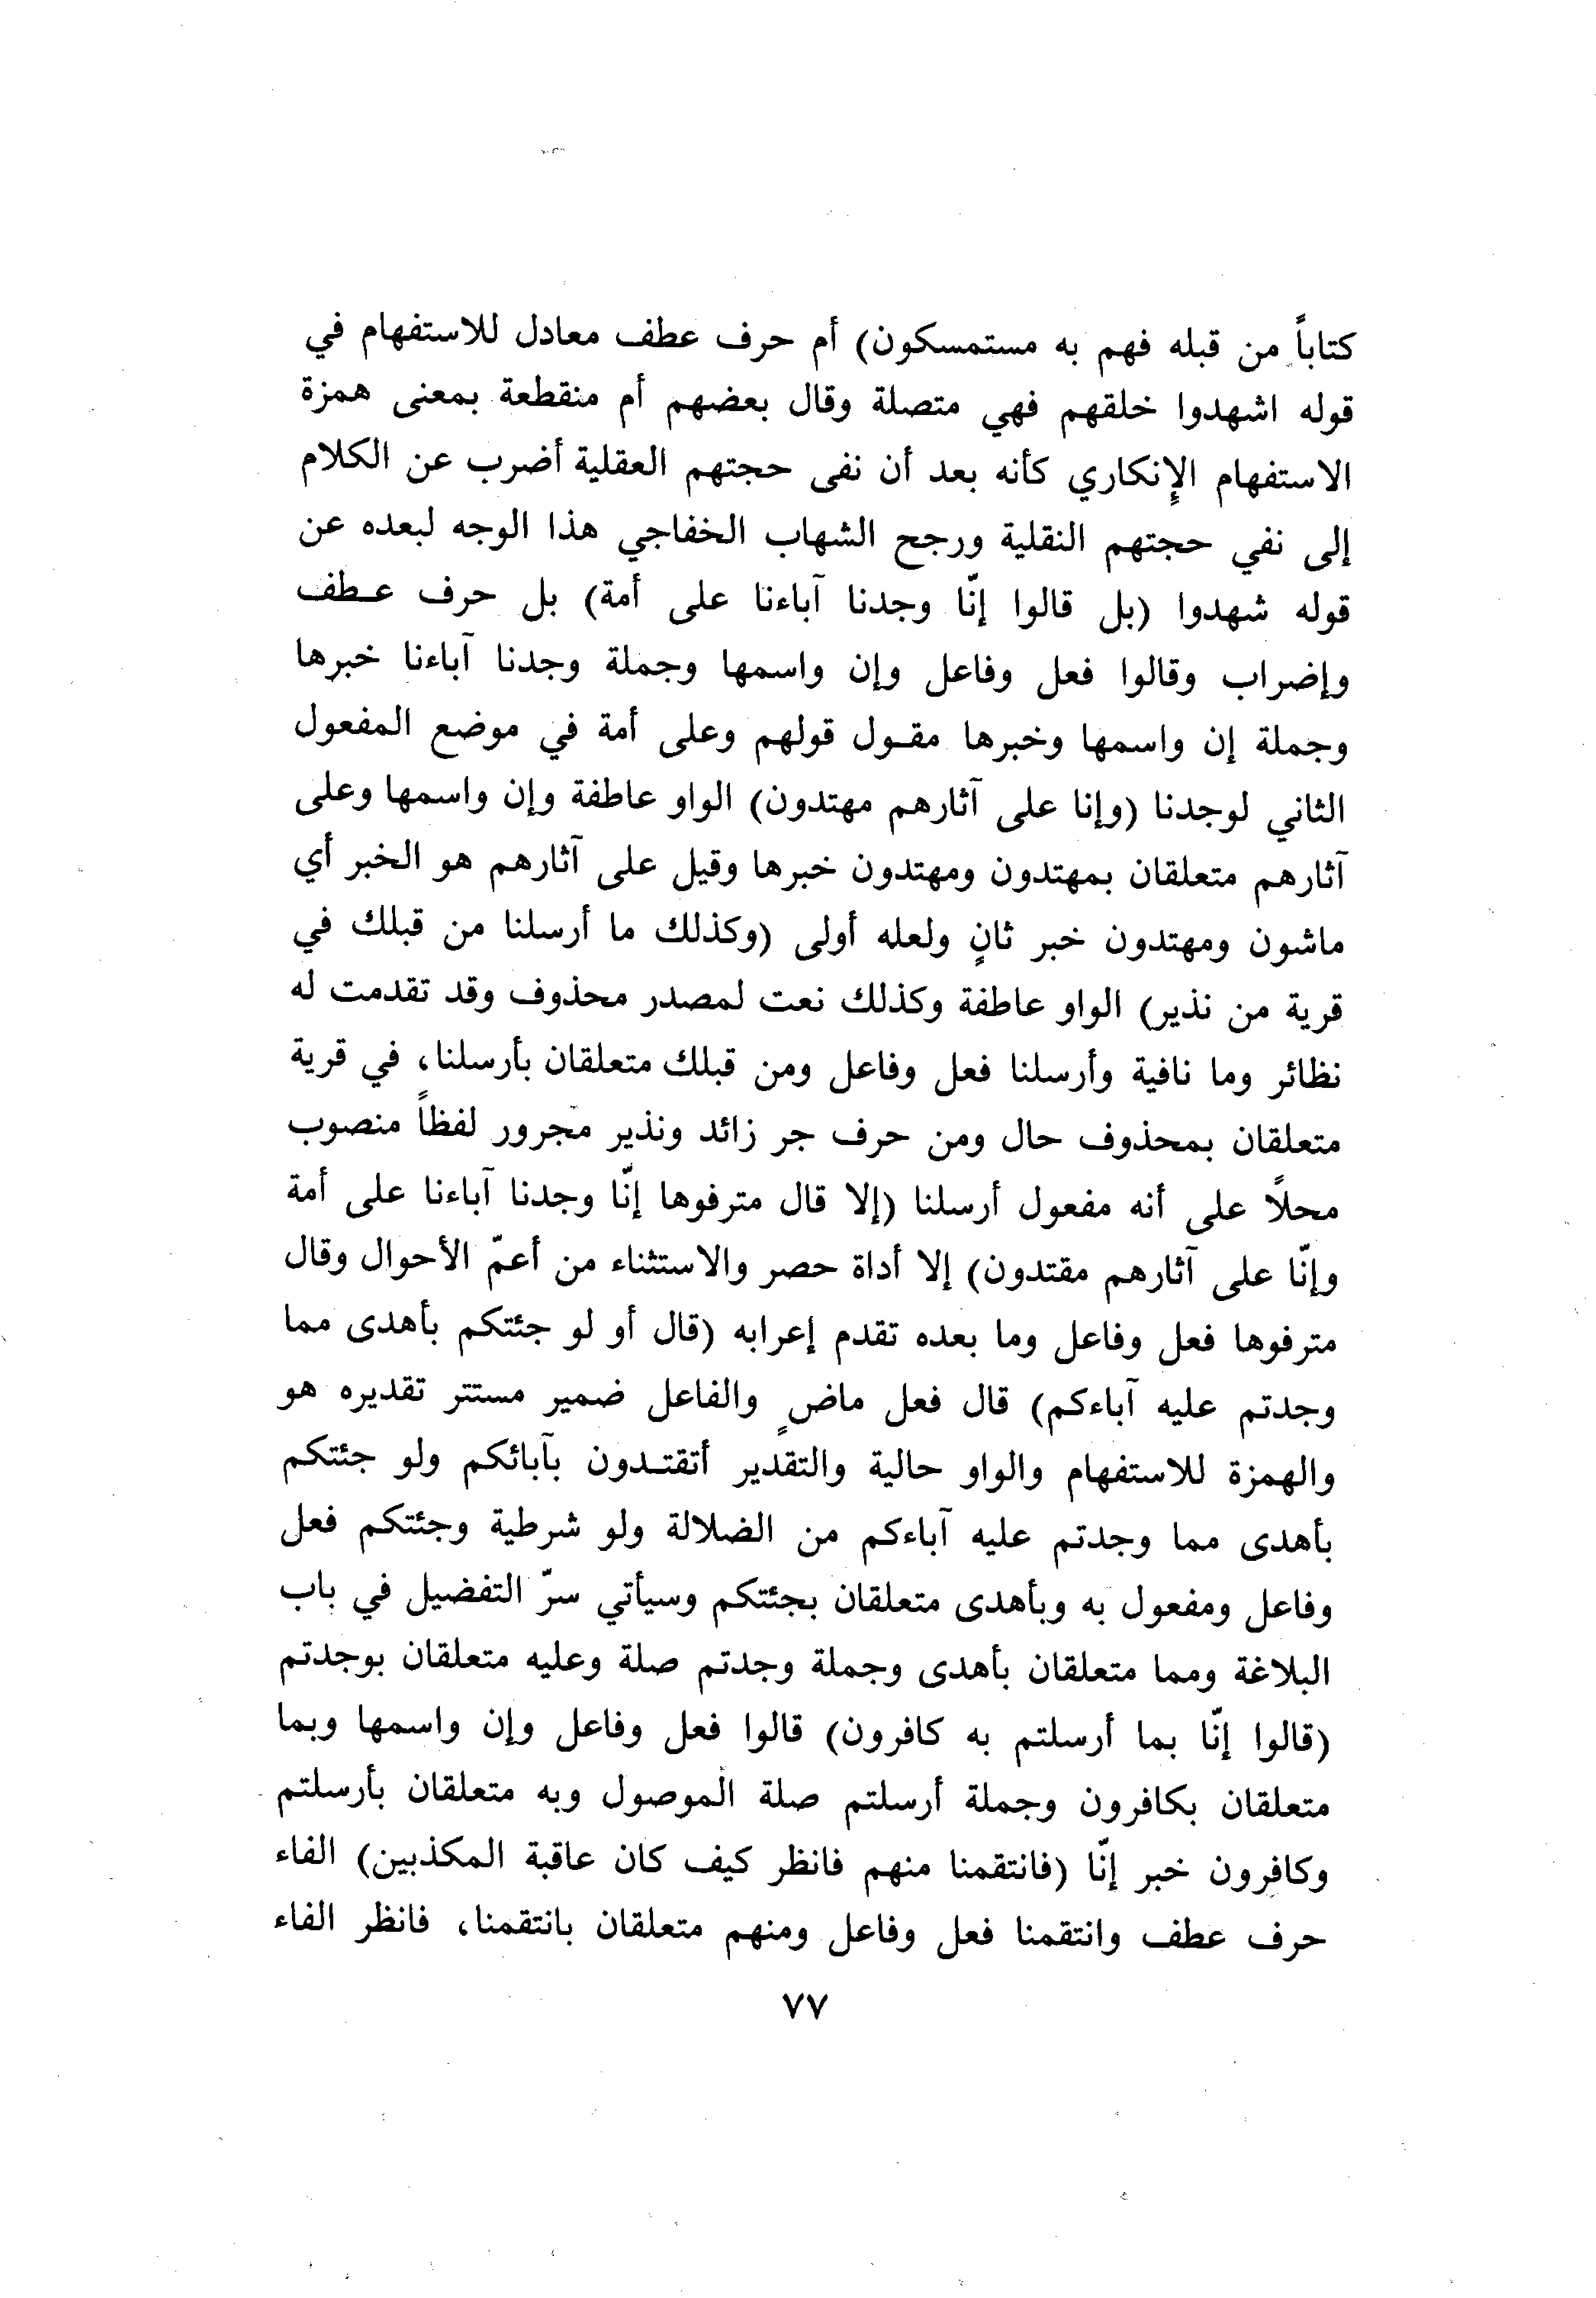 كتاباً من قبله فهم به مستمسكون) أم حرف عطف معادل للاستفهام في
قوله اشهدوا خلقهم فهي متصلة وقال بعضهم أم منقطعة بمعنى همزة
الاستفهام الإنكاري كأنه بعد أن نفى حجتهم العقلية أضرب عن الكلام
إلى نفي حجتهم النقلية ورجح الشهاب الخفاجي هذا الوجه لبعده عن
قوله شهدوا (بل قالوا إنّا وجدنا آباءنا على أمة) بل حرف عطف
وإضراب وقالوا فعل وفاعل وإن واسمها وجملة وجدنا آباءنا خبرها
وجملة إن واسمها وخبرها مقول قولهم وعلى أمة في موضع المفعول
الثاني لوجدنا (وإنا على آثارهم مهتدون) الواو عاطفة وإن واسمها وعلى
آثارهم متعلقان بمهتدون ومهتدون خبرها وقيل على آثارهم هو الخبر أي
ماشون ومهتدون خبر ثانٍ ولعله أولى (وكذلك ما أرسلنا من قبلك في
قرية من نذير) الواو عاطفة وكذلك نعت لمصدر محذوف وقد تقدمت له
نظائر وما نافية وأرسلنا فعل وفاعل ومن قبلك متعلقان بأرسلنا، في قرية
متعلقان بمحذوف حال ومن حرف جر زائد ونذير مجرور لفظاً منصوب
محلاً على أنه مفعول أرسلنا (إلا قال مترفوها إنّا وجدنا آباءنا على أمة
وإنّا على آثارهم مقتدون) إلا أداة حصر والاستثناء من أعمّ الأحوال وقال
مترفوها فعل وفاعل وما بعده تقدم إعرابه (قال أو لو جئتكم بأهدى مما
وجدتم عليه آباءكم) قال فعل ماضٍ والفاعل ضمير مستتر تقديره هو
والهمزة للاستفهام والواو حالية والتقدير أتقتدون بآبائكم ولو جئتكم
بأهدى مما وجدتم عليه آباءكم من الضلالة ولو شرطية وجئتكم فعل
وفاعل ومفعول به وبأهدى متعلقان بجئتكم وسيأتي سرّ التفضيل في باب
البلاغة ومما متعلقان بأهدى وجملة وجدتم صلة وعليه متعلقان بوجدتم
(قالوا إنّا بما أرسلتم به كافرون) قالوا فعل وفاعل وإن واسمها وبما
متعلقان بكافرون وجملة أرسلتم صلة الموصول وبه متعلقان بأرسلتم
وكافرون خبر إنّا (فانتقمنا منهم فانظر كيف كان عاقبة المكذبين) الفاء
حرف عطف وانتقمنا فعل وفاعل ومنهم متعلقان بانتقمنا، فانظر الفاء
٧٧